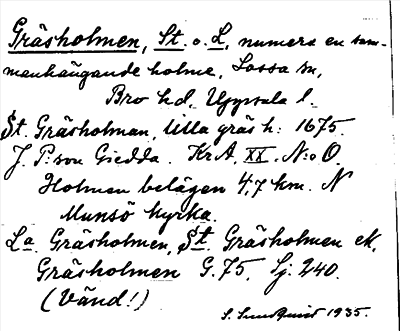 Gräsholmen, St. o. L., numera en sam-
manhängande holme, Låssa sn,
Bro hd, Uppsala l.
St. Gräsholman, Lilla gräs h: 1675.
J. P:son Giedda. Kr.A. XX. N:o O.
Holmen belägen 4,7 km. N
Munsö kyrka.
La Gräsholmen, St. Gräsholmen ek.
Gräsholmen G. 75, Lj. 240.
(Vänd!)
S. Sundquist 1935.